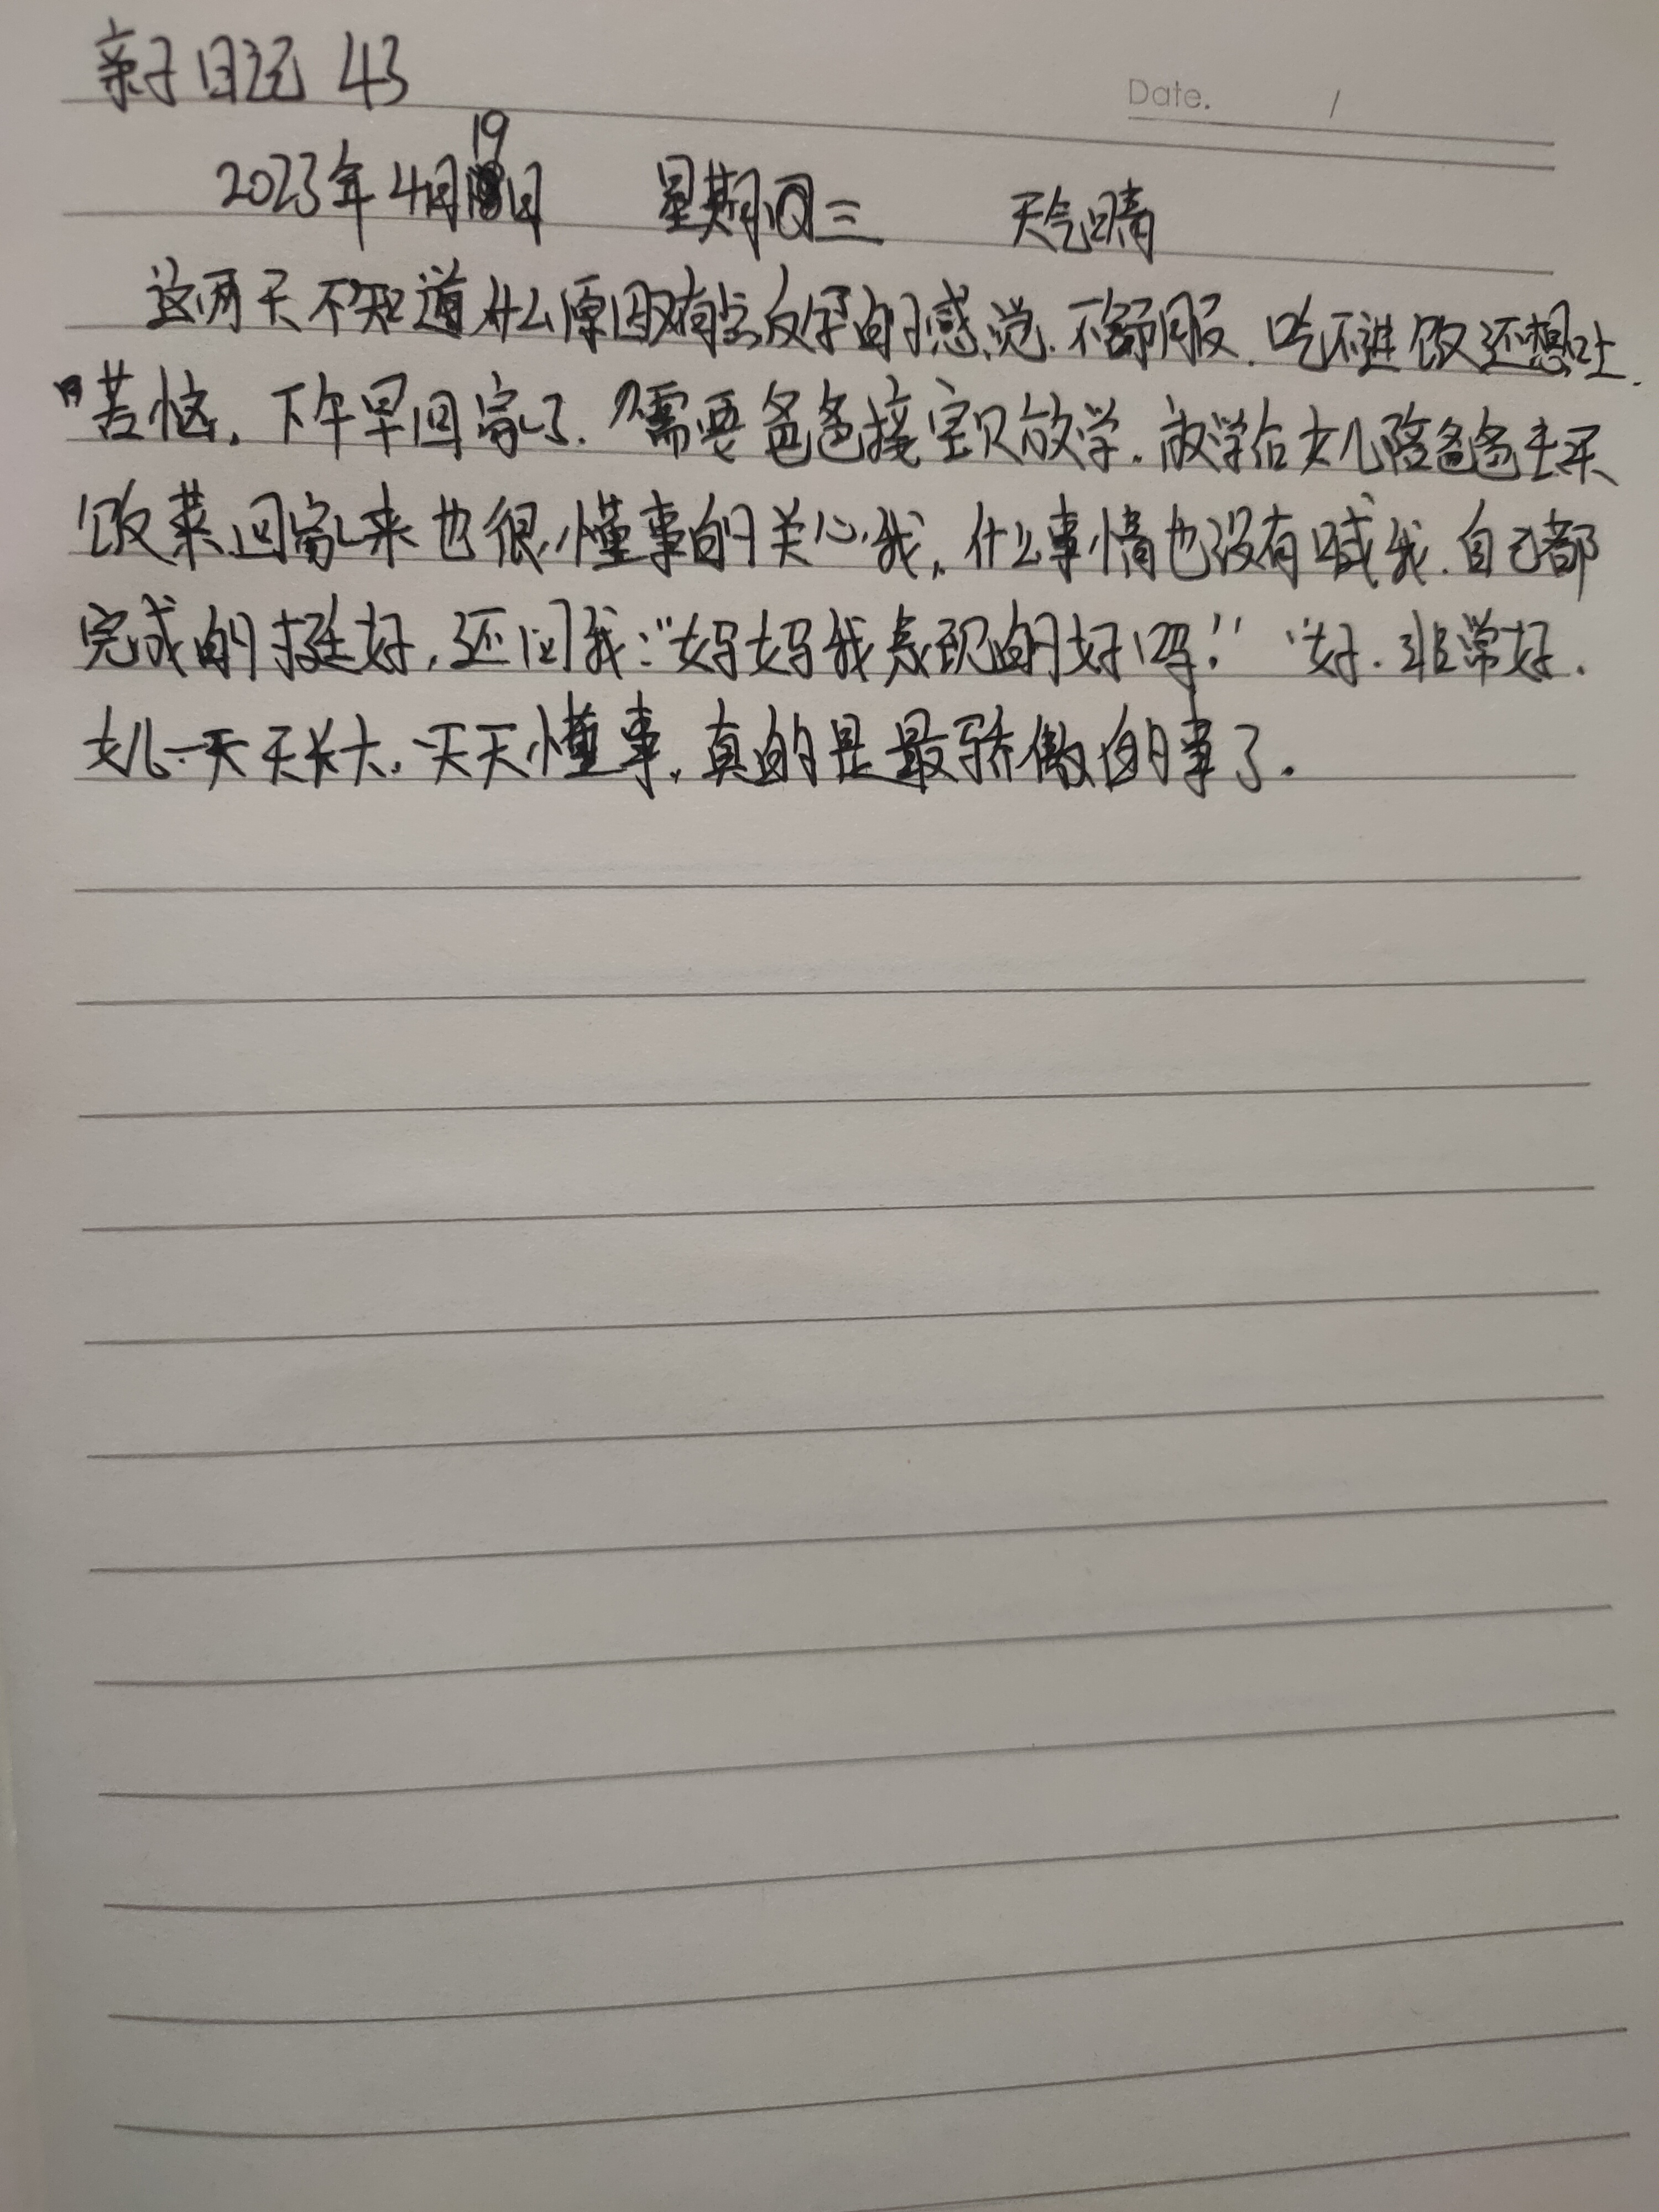 亲子日记 43
Date. /
2023年4月19日 星期三 天气晴
这两天不知道什么原因又有点反胃的感觉.不舒服.吃不进饭还想吐.
苦恼.下午早回家了.需要爸爸接宝贝放学.放学后女儿陪爸爸去买
饭菜.回家来也很懂事的关心我.什么事情也没有喊我.自己都
完成的挺好,还问我:“妈妈我表现的好吗!” “好.非常好.
女儿一天天长大.一天天懂事.真的是最骄傲的事了.